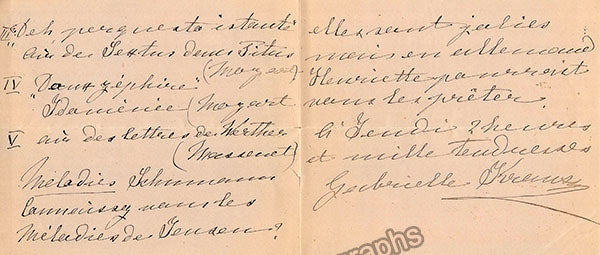 IIIe "Deh per questo istante"
air de Sextus dans Titus
(Mozart)
IV "Doux zéphire"
"Idoménée (Mozart
V air des lettres de Werther
(Massenet)
Mélodies Schumann
Connaissez vous les
Mélodies de Jensen?
elles sont jolies
mais en allemand
Henriette pourrait
vous les prêter.
à Jeudi 2 heures
et mille tendresses
Gabrielle Krauss
graphs